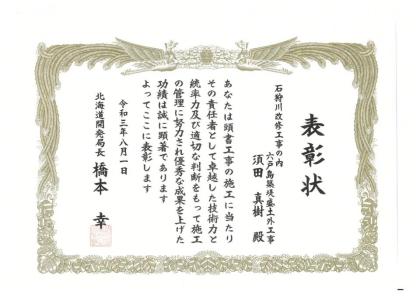 表彰状
石狩川改修工事の内
六戸島築堤盛土外工事
須田 真樹 殿
あなたは頭書工事の施工に当たり
その責任者として卓越した技術力と
統率力及び適切な判断をもって施工
の管理に努力され優秀な成果を上げた
功績は誠に顕著であります
よってここに表彰します
令和三年八月一日
北海道開発局長 橋本 幸